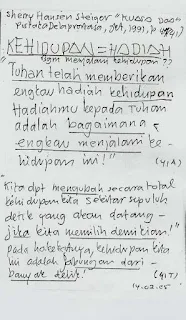 Sherry Hansen Steiger "KUASA DOA"
Pustaka Delapratasa, Jkt, 1998, p
KEHIDUPAN = HADIAH
Bgm menjalani kehidupan ??
Tuhan telah memberikan
engkau hadiah kehidupan
Hadiahmu kepada Tuhan
adalah bagaimana
engkau menjalani ke-
hidupan ini!"
(41A)
"Kita dpt mengubah secara total
kehidupan kita sekitar sepuluh
detik yang akan datang –
jika kita memilih demikian!"
pada hakekatnya, kehidupan kita
ini adalah gabungan dari –
banyak detik! (41T)
14.02.05